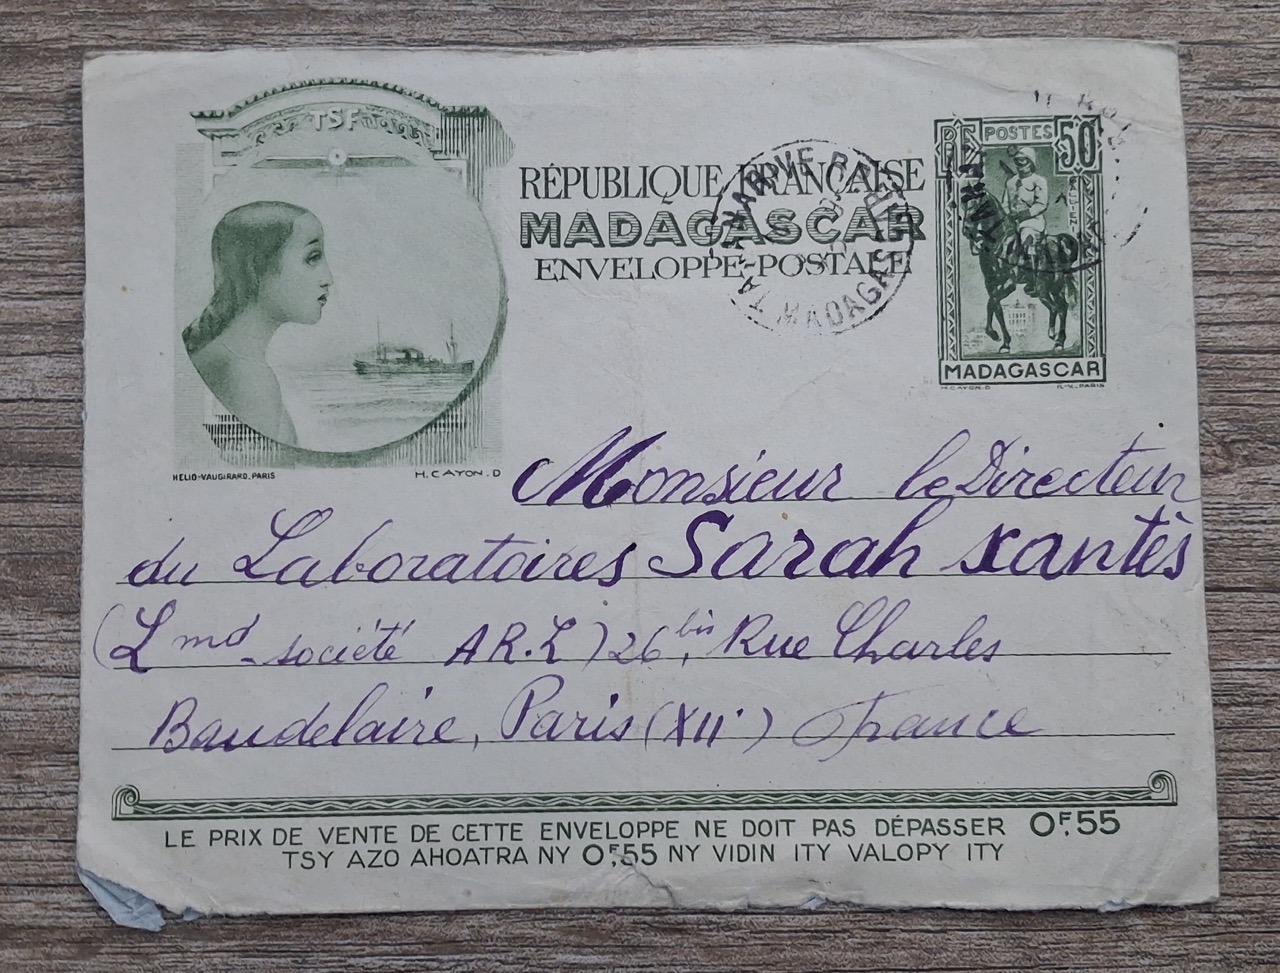 TSF
RÉPUBLIQUE FRANÇAISE
MADAGASCAR
ENVELOPPE-POSTALE
RF POSTES 50
MADAGASCAR
H.CAYON.D
MADAGASCAR
HELIO-VAUGIRARD.PARIS
H.CAYON.D
Monsieur le Directeur
du Laboratoires Sarah Xantès
(Lmd société AR.L) 26bis, Rue Charles
Baudelaire, Paris (XII) France
LE PRIX DE VENTE DE CETTE ENVELOPPE NE DOIT PAS DÉPASSER 0F.55
TSY AZO AHOATRA NY 0F.55 NY VIDIN ITY VALOPY ITY